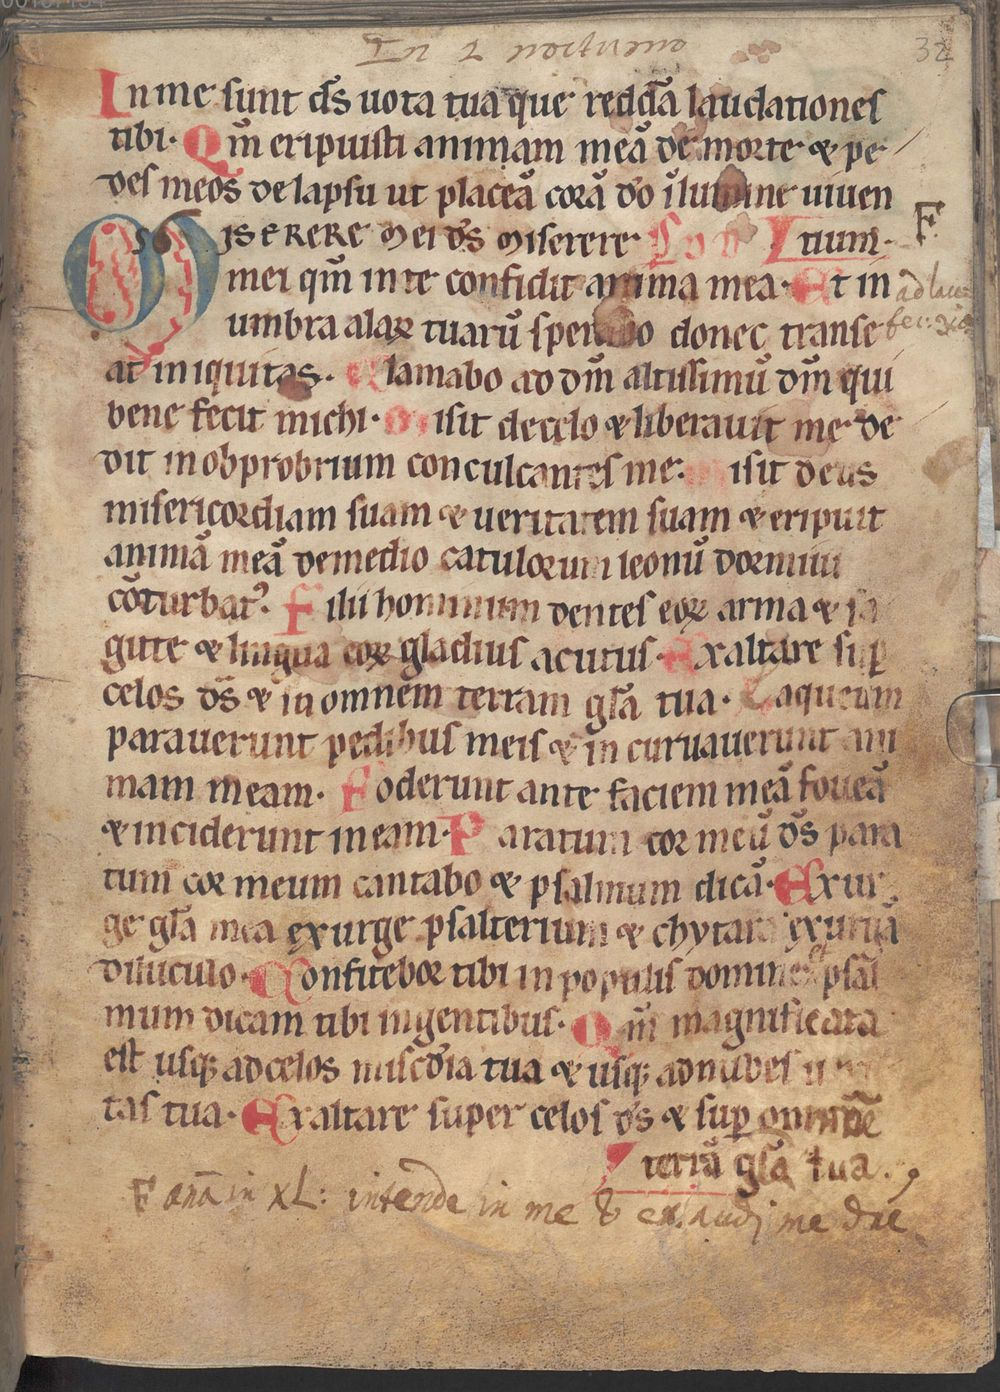 In 2 nocturno
32
In me sunt d̄s uota tua que reddā laudationes
tibi. Qm̄ eripuisti animam meā de morte & pe
des meos de lapsu ut placeā corā d̄o ī lumine uiuen
MISERERE Mei d̄s Miserere tium.
F
mei qm̄ in te confidit anima mea. Et in
ad lau
umbra alaꝝ tuarū sperabo donec transe
at iniquitas. Clamabo ad dm̄ altissimū dm̄ qui
bene fecit michi. Misit de celo & liberauit me de
dit in obprobrium conculcantes me. Misit deus
misericordiam suam & ueritatem suam & eripuit
animā meā de medio catulorum leonū dormiui
cōturbatꝰ. Filii hominum dentes eoꝝ arma & sa
gitte & lingua eoꝝ gladius acutus. Exaltare suꝑ
celos d̄s & in omnem terram gl̄a tua. Laqueum
parauerunt pedibus meis & incuruauerunt ani
mam meam. Foderunt ante faciem meā foueā
& inciderunt in eam. Paratum cor meū d̄s para
tum cor meum cantabo & psalmum dicā. Exur
ge gl̄a mea exurge psalterium & chytara exurgā
diluculo. Confitebor tibi in populis domine et psal
mum dicam tibi in gentibus. Qm̄ magnificata
est usqꝫ ad celos misc̄dia tua & usqꝫ ad nubes ueri
tas tua. Exaltare super celos d̄s & suꝑ omnē
terrā gl̄a tua.
F anā in XL: intende in me & exaudi me dn̄e